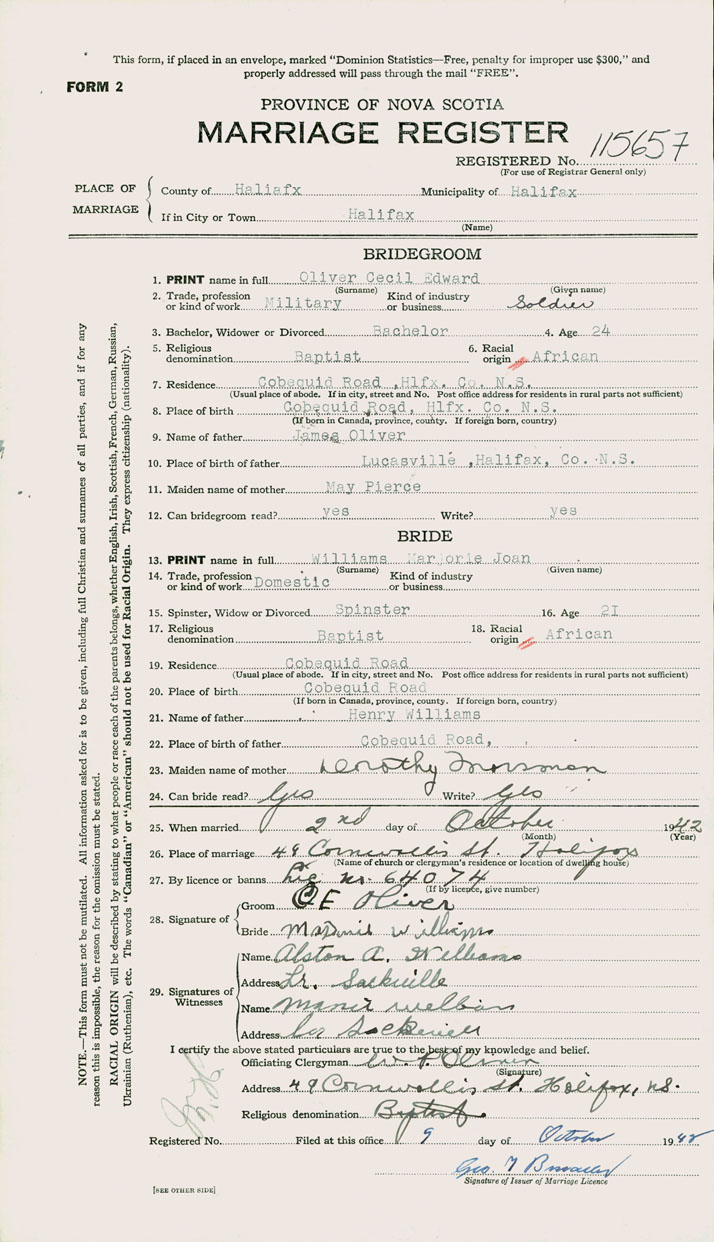 This form, if placed in an envelope, marked "Dominion Statistics—Free, penalty for improper use $300," and
properly addressed will pass through the mail "FREE".
FORM 2
PROVINCE OF NOVA SCOTIA
MARRIAGE REGISTER
REGISTERED No. 115657
(For use of Registrar General only)
PLACE OF MARRIAGE
County of Haliafx Municipality of Halifax
If in City or Town Halifax
(Name)
BRIDEGROOM
1. PRINT name in full Oliver Cecil Edward
(Surname) (Given name)
2. Trade, profession or kind of work Military Kind of industry or business Soldier
3. Bachelor, Widower or Divorced Bachelor 4. Age 24
5. Religious denomination Baptist 6. Racial origin African
7. Residence Cobequid Road ,Hlfx. Co. N.S.
(Usual place of abode. If in city, street and No. Post office address for residents in rural parts not sufficient)
8. Place of birth Cobequid Road, Hlfx. Co. N.S.
(If born in Canada, province, county. If foreign born, country)
9. Name of father James Oliver
10. Place of birth of father Lucasville ,Halifax, Co. N.S.
11. Maiden name of mother May Pierce
12. Can bridegroom read? yes Write? yes
BRIDE
13. PRINT name in full Williams Marjorie Joan
(Surname) (Given name)
14. Trade, profession or kind of work Domestic Kind of industry or business
15. Spinster, Widow or Divorced Spinster 16. Age 2I
17. Religious denomination Baptist 18. Racial origin African
19. Residence Cobequid Road
(Usual place of abode. If in city, street and No. Post office address for residents in rural parts not sufficient)
20. Place of birth Cobequid Road
(If born in Canada, province, county. If foreign born, country)
21. Name of father Henry Williams
22. Place of birth of father Cobequid Road,
23. Maiden name of mother Dorothy
24. Can bride read? Yes Write? Yes
25. When married 2nd day of October 1942
(Month) (Year)
26. Place of marriage 49 Cornwallis St. Halifax
(Name of church or clergyman's residence or location of dwelling house)
27. By licence or banns Lic no. 64074
(If by licence, give number)
28. Signature of
Groom C E Oliver
Bride Williams
29. Signatures of Witnesses
Name Alston A. Williams
Address Lr. Sackville
Name
Address Sackville
I certify the above stated particulars are true to the best of my knowledge and belief.
Officiating Clergyman W. P. Oliver
(Signature)
Address 49 Cornwallis St. Halifax, N.S.
Religious denomination Baptist
Registered No. Filed at this office 9 day of October 1942
Geo. 
Signature of Issuer of Marriage Licence
[SEE OTHER SIDE]
NOTE.—This form must not be mutilated. All information asked for is to be given, including full Christian and surnames of all parties, and if for any
reason this is impossible, the reason for the omission must be stated.
RACIAL ORIGIN will be described by stating to what people or race each of the parents belongs, whether English, Irish, Scottish, French, German, Russian,
Ukrainian (Ruthenian), etc. The words "Canadian" or "American" should not be used for Racial Origin. They express citizenship (nationality).